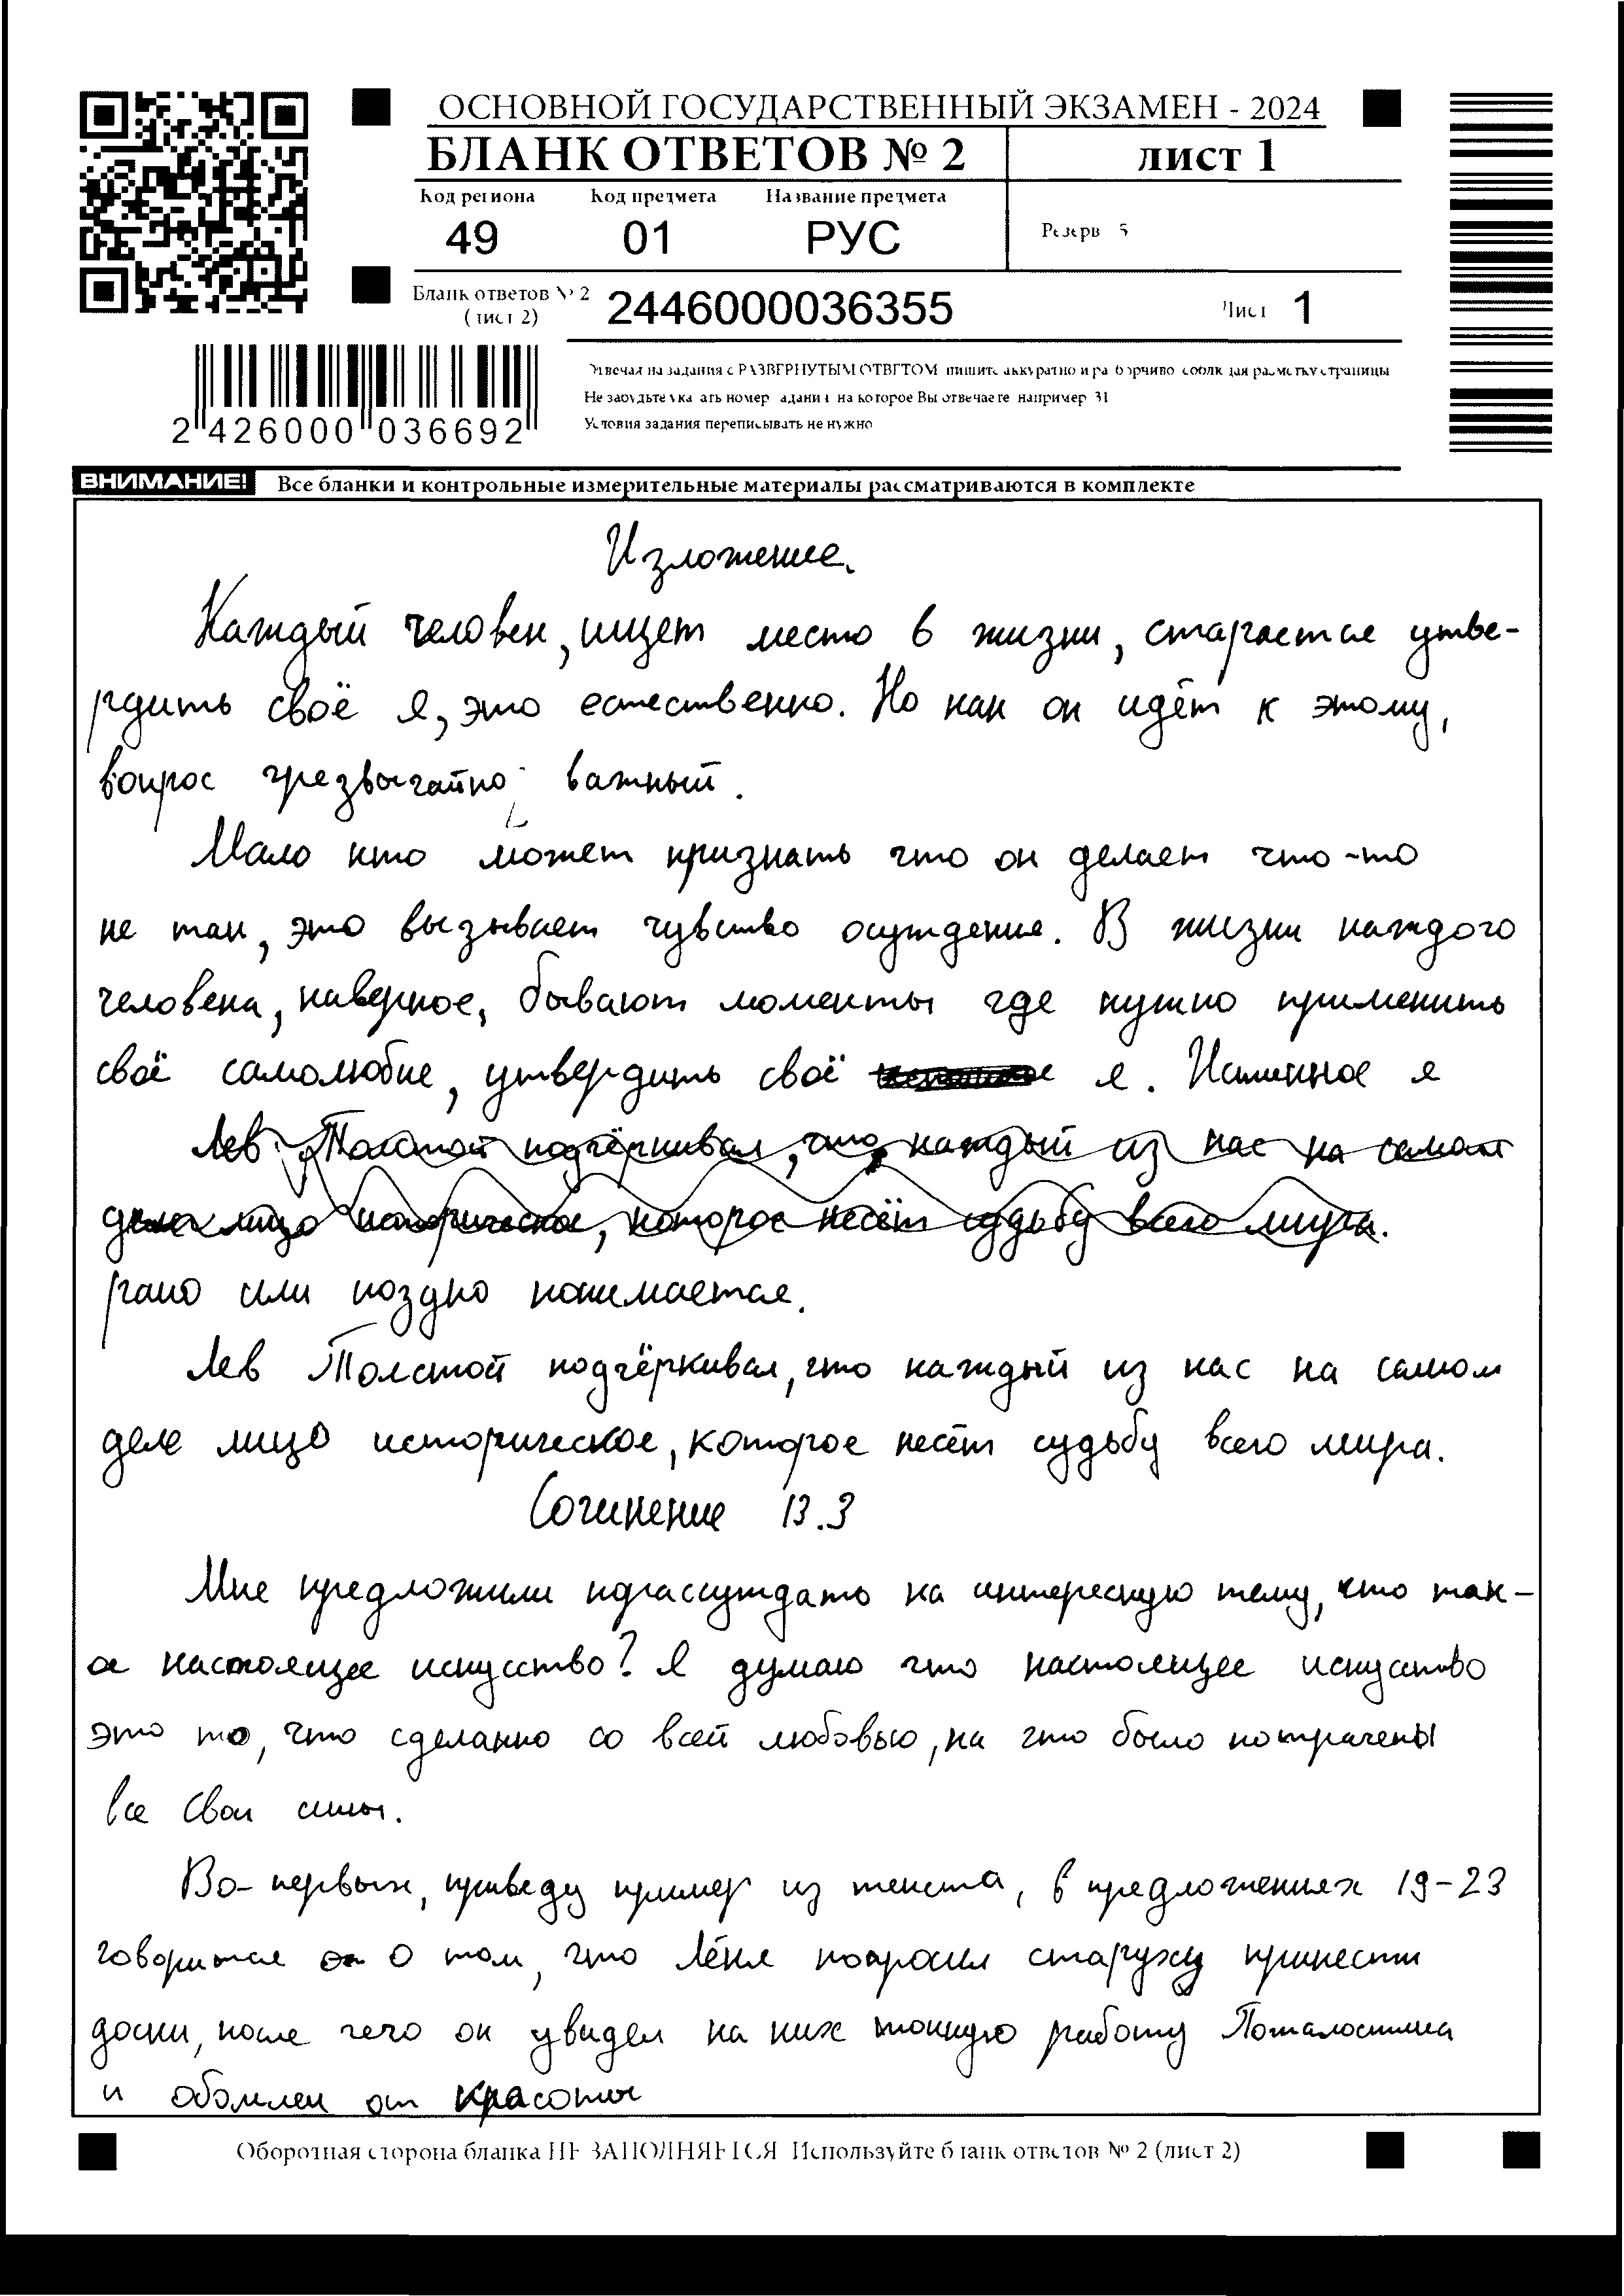 ОСНОВНОЙ ГОСУДАРСТВЕННЫЙ ЭКЗАМЕН - 2024
БЛАНК ОТВЕТОВ № 2
лист 1
Код региона Код предмета Название предмета
49 01 РУС
Резерв 5
Бланк ответов № 2
(лист 2)
2446000036355
Лист 1
2 426000 036692
Отвечая на задания с РАЗВЕРНУТЫМ ОТВЕТОМ пишите аккуратно и разборчиво соблюдая разметку страницы
Не забудьте указать номер задания на которое Вы отвечаете например 31
Условия задания переписывать не нужно
ВНИМАНИЕ! Все бланки и контрольные измерительные материалы рассматриваются в комплекте
Изложение.
Каждый человек, ищет место в жизни, старается утве-
рдить своё я, это естественно. Но как он идёт к этому,
вопрос чрезвычайно важный.
Мало кто может признать что он делает что-то
не так, это вызывает чувство осуждение. В жизни каждого
человека, наверное, бывают моменты где нужно применить
своё самолюбие, утвердить своё я. Истинное я
Лев Толстой подчёркивал, что каждый из нас на самом
деле лицо историческое, которое несёт судьбу всего мира.
рано или поздно понимается.
Лев Толстой подчёркивал, что каждый из нас на самом
деле лицо историческое, которое несёт судьбу всего мира.
Сочинение 13.3
Мне предложили порассуждать на интересную тему, что так-
ое настоящее искусство? Я думаю что настоящее искуство
это то, что сделанно со всей любовью, на что было потрачены
все свои силы.
Во-первых, приведу пример из текста, в предложениях 19-23
говориться о том, что Лёня попросил старуху принести
доски, после чего он увидел на них тонкую работу Пожалостина
и обомлел от красоты
Оборотная сторона бланка НЕ ЗАПОЛНЯЕТСЯ Используйте бланк ответов № 2 (лист 2)